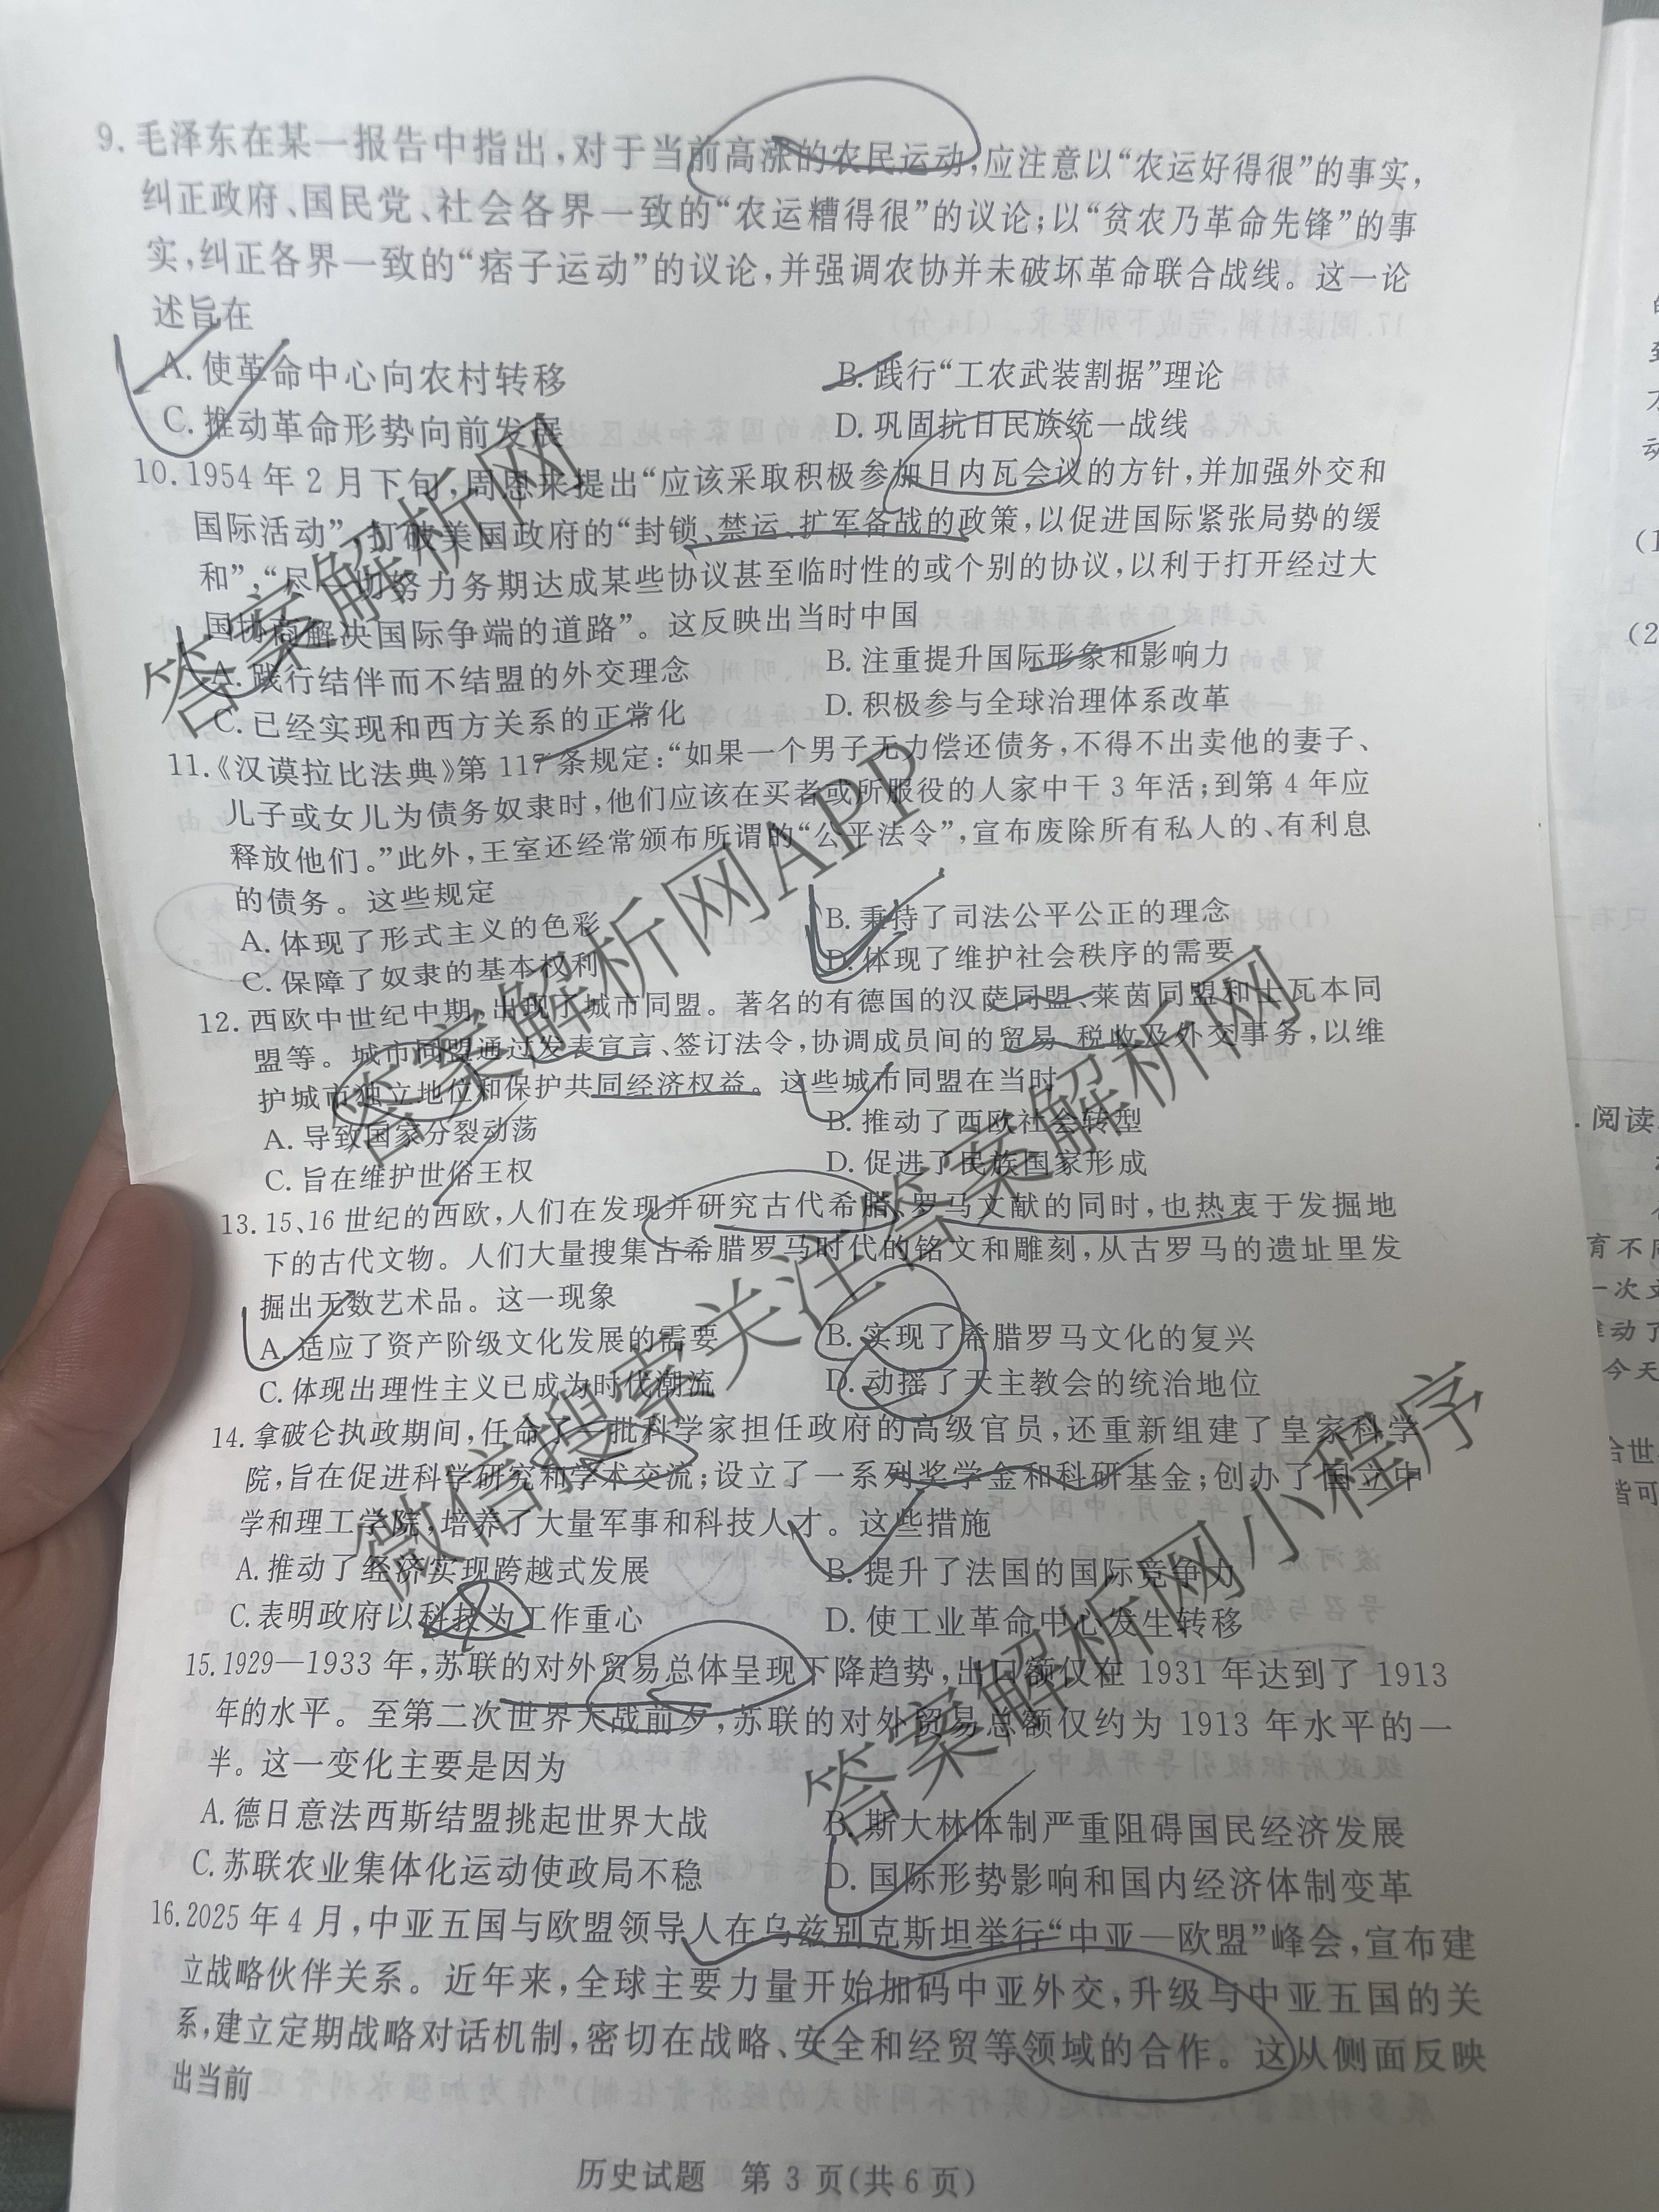 9. 毛泽东在某一报告中指出,对于当前高涨的农民运动,应注意以“农运好得很”的事实,
纠正政府、国民党、社会各界一致的“农运糟得很”的议论;以“贫农乃革命先锋”的事
实,纠正各界一致的“痞子运动”的议论,并强调农协并未破坏革命联合战线。这一论
述旨在
A. 使革命中心向农村转移 B. 践行“工农武装割据”理论
C. 推动革命形势向前发展 D. 巩固抗日民族统一战线
10. 1954年2月下旬,周恩来提出“应该采取积极参加日内瓦会议的方针,并加强外交和
国际活动”,打破美国政府的“封锁、禁运、扩军备战的政策,以促进国际紧张局势的缓
和”,“尽一切努力务期达成某些协议甚至临时性的或个别的协议,以利于打开经过大
国协商解决国际争端的道路”。这反映出当时中国
A. 践行结伴而不结盟的外交理念 B. 注重提升国际形象和影响力
C. 已经实现和西方关系的正常化 D. 积极参与全球治理体系改革
11.《汉谟拉比法典》第117条规定:“如果一个男子无力偿还债务,不得不出卖他的妻子、
儿子或女儿为债务奴隶时,他们应该在买者或所服役的人家中干3年活;到第4年应
释放他们。”此外,王室还经常颁布所谓的“公平法令”,宣布废除所有私人的、有利息
的债务。这些规定
A. 体现了形式主义的色彩 B. 秉持了司法公平公正的理念
C. 保障了奴隶的基本权利 D. 体现了维护社会秩序的需要
12. 西欧中世纪中期,出现了城市同盟。著名的有德国的汉萨同盟、莱茵同盟和士瓦本同
盟等。城市同盟通过发表宣言、签订法令,协调成员间的贸易、税收及外交事务,以维
护城市独立地位和保护共同经济权益。这些城市同盟在当时
A. 导致国家分裂动荡 B. 推动了西欧社会转型
C. 旨在维护世俗王权 D. 促进了民族国家形成
13. 15、16世纪的西欧,人们在发现并研究古代希腊、罗马文献的同时,也热衷于发掘地
下的古代文物。人们大量搜集古希腊罗马时代的铭文和雕刻,从古罗马的遗址里发
掘出无数艺术品。这一现象
A. 适应了资产阶级文化发展的需要 B. 实现了希腊罗马文化的复兴
C. 体现出理性主义已成为时代潮流 D. 动摇了天主教会的统治地位
14. 拿破仑执政期间,任命了一批科学家担任政府的高级官员,还重新组建了皇家科学
院,旨在促进科学研究和学术交流;设立了一系列奖学金和科研基金;创办了国立中
学和理工学院,培养了大量军事和科技人才。这些措施
A. 推动了经济实现跨越式发展 B. 提升了法国的国际竞争力
C. 表明政府以科技为工作重心 D. 使工业革命中心发生转移
15. 1929—1933年,苏联的对外贸易总体呈现下降趋势,出口额仅在1931年达到了1913
年的水平。至第二次世界大战前夕,苏联的对外贸易总额仅约为1913年水平的一
半。这一变化主要是因为
A. 德日意法西斯结盟挑起世界大战 B. 斯大林体制严重阻碍国民经济发展
C. 苏联农业集体化运动使政局不稳 D. 国际形势影响和国内经济体制变革
16. 2025年4月,中亚五国与欧盟领导人在乌兹别克斯坦举行“中亚—欧盟”峰会,宣布建
立战略伙伴关系。近年来,全球主要力量开始加码中亚外交,升级与中亚五国的关
系,建立定期战略对话机制,密切在战略、安全和经贸等领域的合作。这从侧面反映
出当前
历史试题 第3页(共6页)
答案解析网
答案解析网APP
微信搜索关注答案解析网
答案解析网小程序
(1
(2
阅读
育不
一次文
推动了
今天
合世
皆可
只有